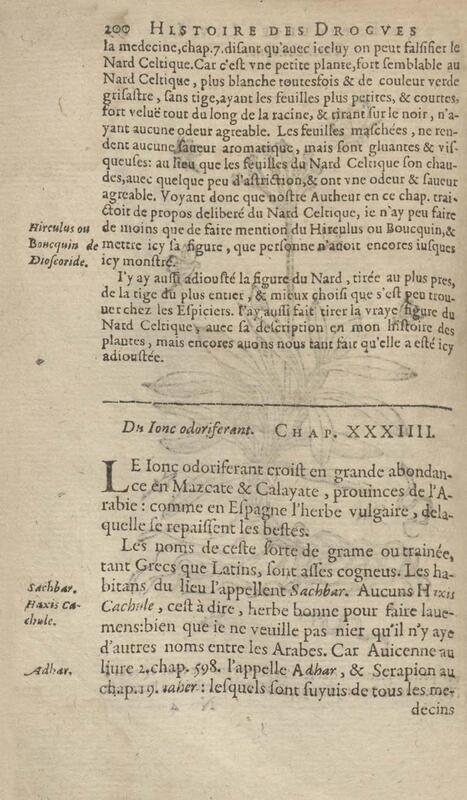 200 HISTOIRE DES DROGVES
la medecine, chap. 7. disant qu'auec iceluy on peut falsifier le
Nard Celtique. Car c'est vne petite plante, fort semblable au
Nard Celtique, plus blanche toutesfois & de couleur verde
grisastre, sans tige, ayant les feuilles plus petites, & courtes,
fort veluë tout du long de la racine, & tirant sur le noir, n'a-
yant aucune odeur agreable. Les feuilles maschées, ne ren-
dent aucune saueur aromatique, mais sont gluantes & vis-
queuses: au lieu que les feuilles du Nard Celtique son chau-
des, auec quelque peu d'astriction, & ont vne odeur & saueur
agreable. Voyant donc que nostre Autheur en ce chap. trai-
ctoit de propos deliberé du Nard Celtique, ie n'ay peu faire
de moins que de faire mention du Hirculus ou Boucquin, &
mettre icy sa figure, que personne n'auoit encores iusques
icy monstré.
Hirculus ou
Boucquin de
Dioscoride.
I'y ay aussi adiousté la figure du Nard, tirée au plus pres,
de la tige du plus entier, & mieux choisi que s'est peu trou-
uer chez les Espiciers. I'ay aussi fait tirer la vraye figure du
Nard Celtique, auec sa description en mon histoire des
plantes, mais encores auons nous tant fait qu'elle a esté icy
adioustée.
Du Ionc odoriferant. CHAP. XXXIIII.
LE Ionc odoriferant croist en grande abondan-
ce en Mazcate & Calayate, prouinces de l'A-
rabie: comme en Espagne l'herbe vulgaire, dela-
quelle se repaissent les bestes.
Les noms de ceste sorte de grame ou trainée,
tant Grecs que Latins, sont asses cogneus. Les ha-
bitans du lieu l'appellent Sachbar. Aucuns Haxis
Cachule, cest à dire, herbe bonne pour faire laue-
mens: bien que ie ne veuille pas nier qu'il n'y aye
d'autres noms entre les Arabes. Car Auicenne au
liure 2. chap. 598. l'appelle Adhar, & Serapion au
chap. 19. : lesquels sont suyuis de tous les me-
decins
Sachbar.
Haxis Ca-
chule.
Adhar.